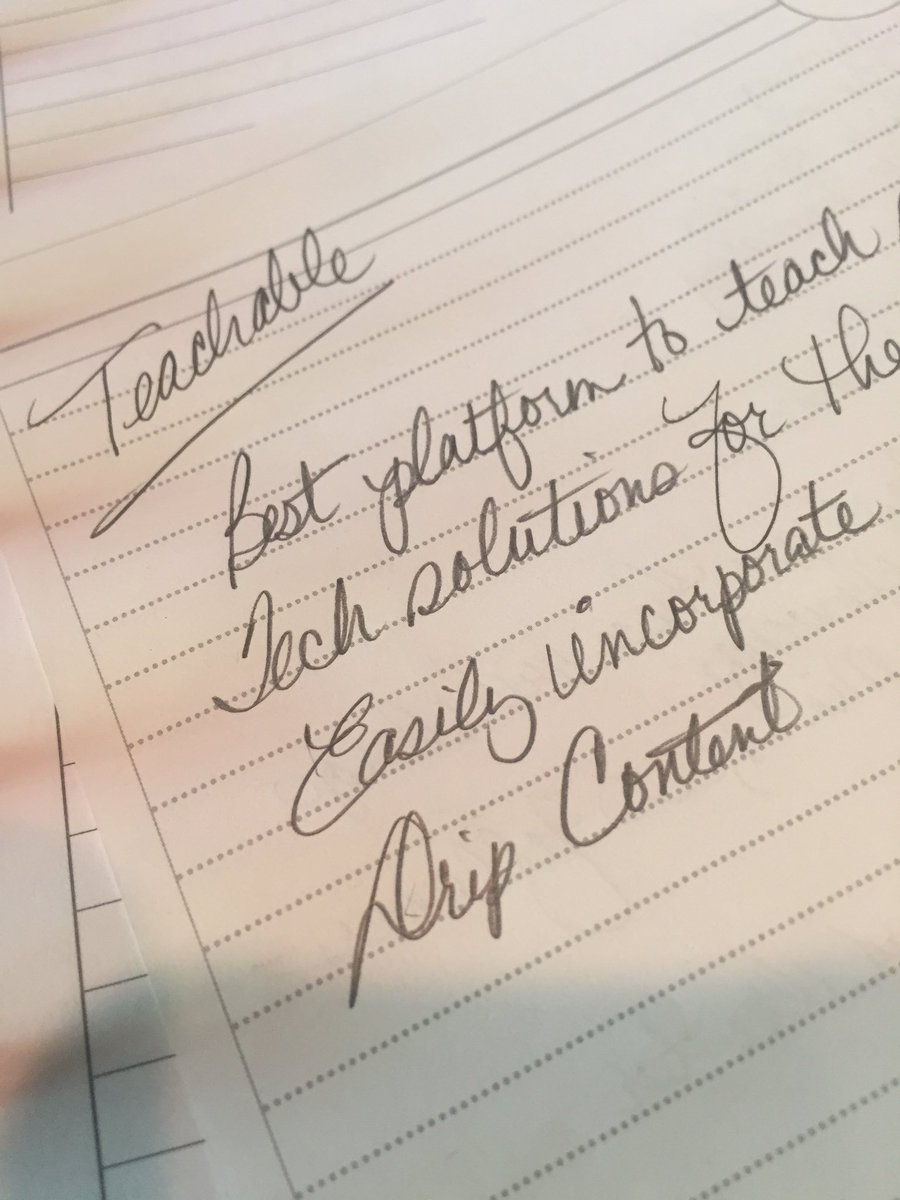 Teachable
Best platform to teach
Tech solutions for the
Easily incorporate
Drip Content